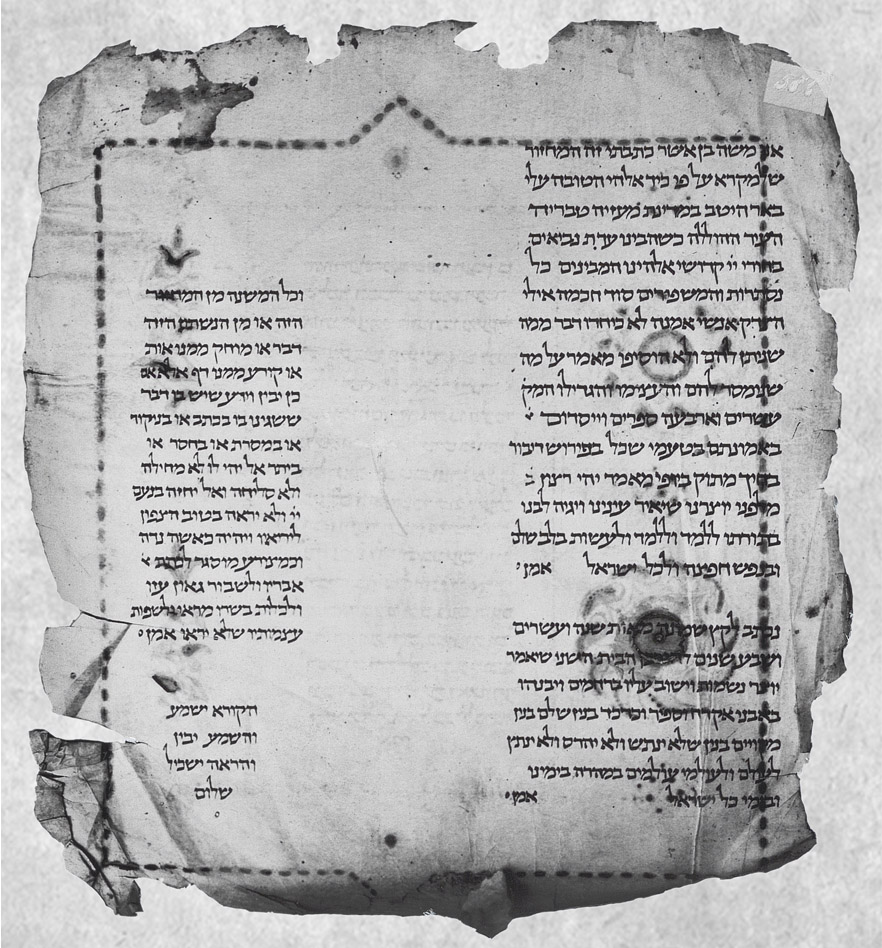 אני משה בן אשר כתבתי זה המחזור
שלמקרא על פי כיד אלהי הטובה עלי
באר היטב במדינת מעזיה טבריה
העיר ההוללה כשהבינו עדת נביאים
בחורי יי קדושי אלהינו המבינים כל
נסתרות והמשפירים סוד חכמה אילי
הצדק אנשי אמנה לא כיחדו דבר ממה
שניתן להם ולא הוסיפו מאמר על מה
שנימסר להם והעצימו והגדילו המק
עשרים וארבעה ספרים וייסדום
באמונתם בטעמי שכל בפירוש דיבור
בחיך מתוק ביופי מאמר יהי רצון
מלפני יוצרנו שיאיר עינינו ויגיה לבנו
בתורתו ללמד וללמד ולעשות בלב שלם
ובנפש חפיצה ולכל ישראל אמן
נכתב לקץ שמונה מאות שנה ועשרים
ושבע שנים לחרבן הבית השני שיאמר
יוצר נשמות וישוב עליו ברחמים ויבנהו
באבני אקדח וספיר וכדכד בנין שלם בנין
מקויים בנין שלא ינתש ולא יהרס ולא ינתץ
לעולם ולעולמי עולמים במהרה בימינו
ובימי כל ישראל אמן
וכל המשנה מן המחזור
הזה או מן הנשתון הזה
דבר או מוחק ממנו אות
או קורע ממנו דף
כן יבין וידע שיש בו דבר
ששגינו בו בכתב או בניקוד
או במסרת או בחסר או
ביתר אל יהי לו לא מחילה
ולא סליחה ואל יחזה בנעם
יי ולא יראה בטוב הצפון
ליראיו ויהיה כאשה נדה
וכמצורע מוסגר לכתת
אבריו ולשבור גאון עזו
ולכלות בשרו מראי ולשפות
עצמותיו שלא יראו אמן
הקורא ישמע
והשמע יבין
והראה ישכיל
שלום